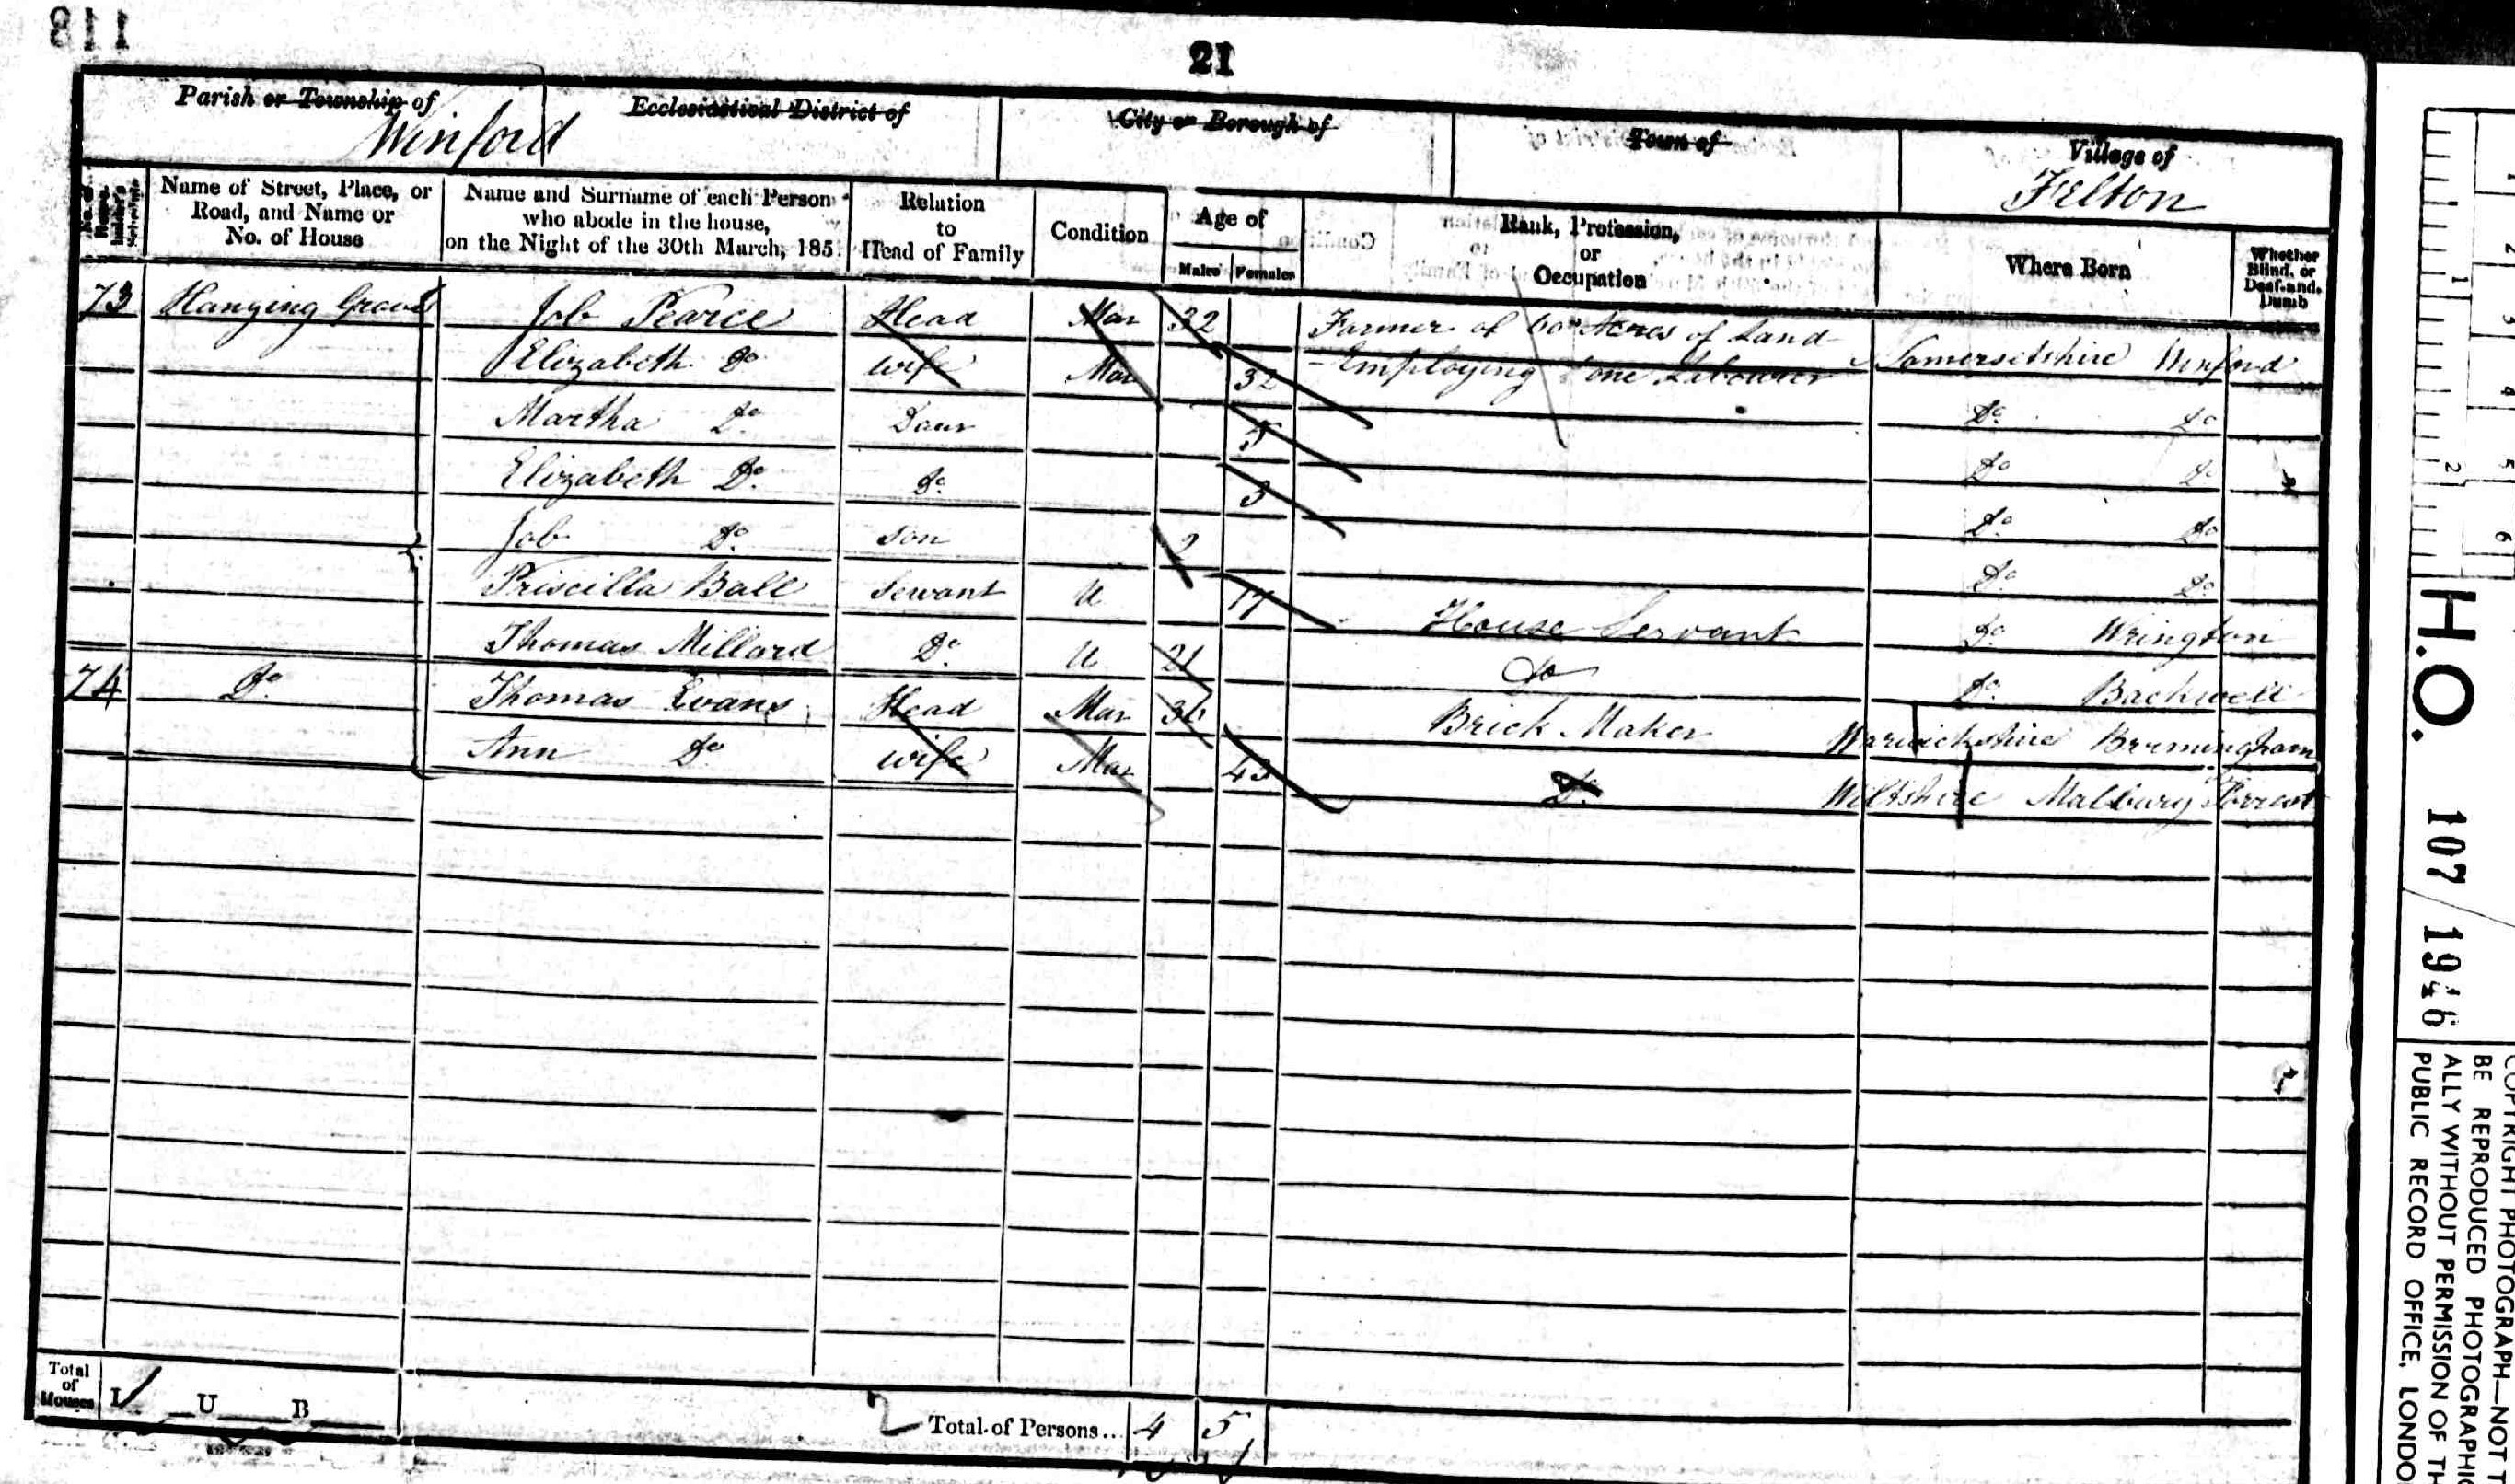 118
21
Parish or Township of
Winford
Ecclesiastical District of
City or Borough of
Town of
Village of
Felton
Name of Street, Place, or Road, and Name or No. of House
Name and Surname of each Person who abode in the house, on the Night of the 30th March, 185
Relation to Head of Family
Condition
Age of
Males
Females
Rank, Profession, or Occupation
Where Born
Whether Blind, or Deaf-and-Dumb
73 Hanging Job Pearce Head Mar 32 Farmer of 60 Acres of Land Somersetshire Winford
Elizabeth Do wife Mar 32 Employing one Labourer Do Do
Martha Do Daur 5 Do Do
Elizabeth Do Do 3 Do Do
Job Do Son 2 Do Do
Priscilla Ball Servant U 17 House Servant Do Wrington
Thomas Millard Do U 21 Do Do Backwell
74 Do Thomas Evans Head Mar 36 Brick Maker Warwickshire Birmingham
Ann Do wife Mar 43 Do Wiltshire Malbury Forrest
Total of Houses I U B
2 Total of Persons... 4 5
H.O. 107/1946
COPYRIGHT PHOTOGRAPH—NOT
BE REPRODUCED PHOTOGRAPHIC
ALLY WITHOUT PERMISSION OF TH
PUBLIC RECORD OFFICE, LONDO
1 2 3 4 5 6
1 2